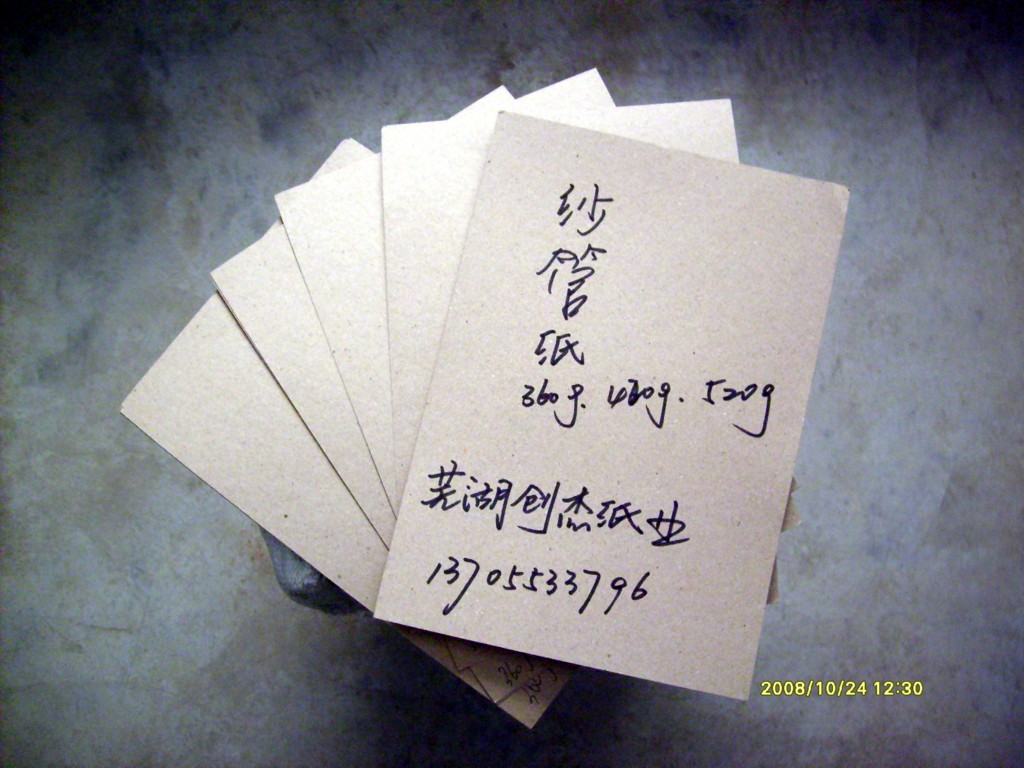 纱
管
纸
360g. 430g. 520g
芜湖创杰纸业
13705533796
360
2008/10/24 12:30